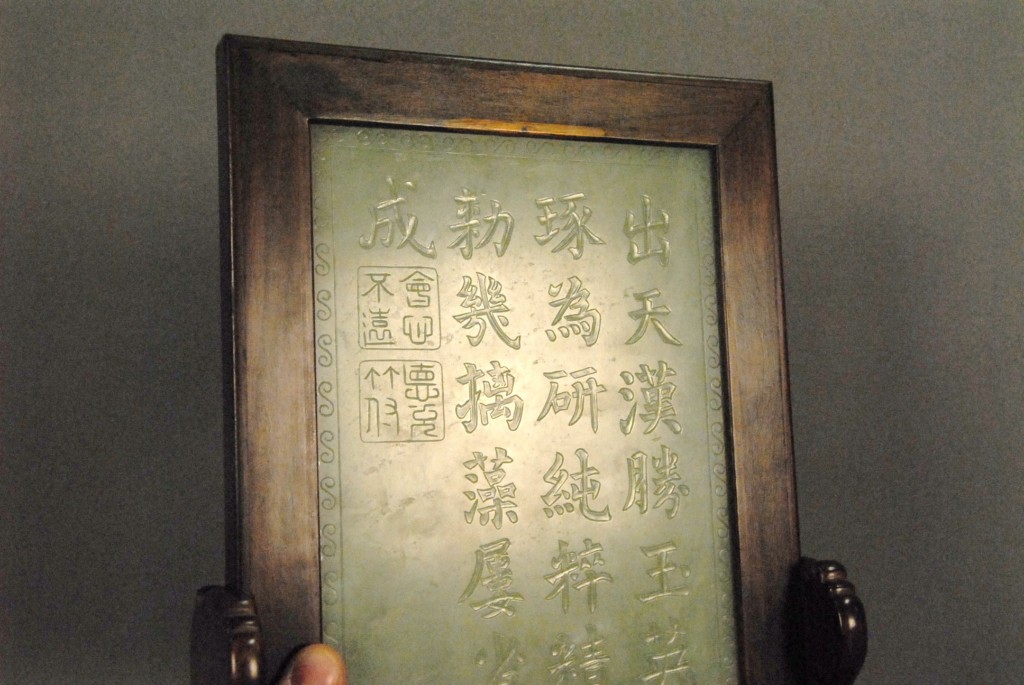 出天漢勝玉英
琢為研純粹精
勑幾摛藻屢省
成
會心不遠
德充符